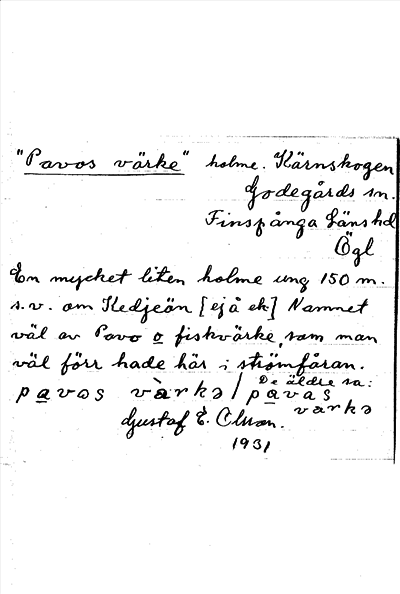 "Pavos värke" holme. Kärnskogen
Godegårds sn.
Finspånga Läns hd
Ögl
En mycket liten holme ung 150 m.
s.v. om Kedjeön [ej å ek] Namnet
väl av Pavo o fiskvärke, som man
väl förr hade här i strömfåran.
pavos värkə / De äldre sa:
pavas
värkə
Gustaf E. Olsson.
1931